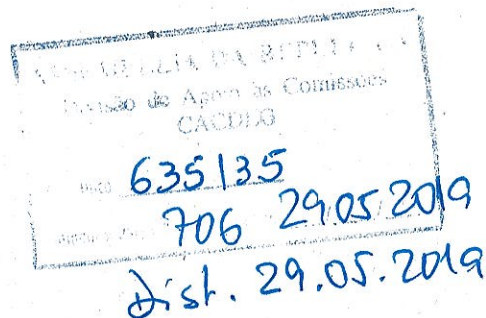 ASSEMBLEIA DA REPÚBLICA
Divisão de Apoio às Comissões
CACDLG
635135
706 29.05.2019
Dist. 29.05.2019